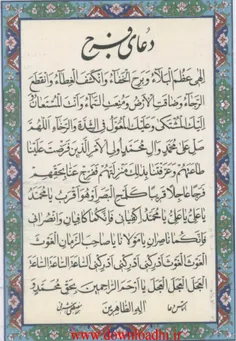 دعای فرج
اِلهی عَظُمَ الْبَلاَّءُ وَبَرِحَ الْخَفآءُ وَانْكَشَفَ الْغِطآءُ وَانْقَطَعَ
الرَّجآءُ وَضاقَتِ الاَْرْضُ وَمُنِعَتِ السَّمآءُ وَاَنْتَ الْمُسْتَعانُ
اِلَيْكَ الْمُشْتَكی وَعَلَيْكَ الْمُعَوَّلُ فِی الشِّدَّةِ وَالرَّخآءِ اَللّهُمَّ
صَلِّ عَلی مُحَمَّدٍ وَآلِ مُحَمَّدٍ اُولِی الاَْمْرِ الَّذينَ فَرَضْتَ عَلَيْنا
طاعَتَهُمْ وَعَرَّفْتَنا بِذلِكَ مَنْزِلَتَهُمْ فَفَرِّجْ عَنّا بِحَقِّهِمْ
فَرَجاً عاجِلاً قَريباً كَلَمْحِ الْبَصَرِ اَوْ هُوَ اَقْرَبُ يا مُحَمَّدُ
يا عَلِیُّ يا عَلِیُّ يا مُحَمَّدُ اِكْفِيانی فَاِنَّكُما كافِيانِ وَانْصُرانی
فَاِنَّكُما ناصِرانِ يا مَوْلانا يا صاحِبَ الزَّمانِ الْغَوْثَ
الْغَوْثَ الْغَوْثَ اَدْرِكْنی اَدْرِكْنی اَدْرِكْنی السّاعَةَ السّاعَةَ السّاعَةَ
الْعَجَلَ الْعَجَلَ الْعَجَلَ يا اَرْحَمَ الرّاحِمينَ بِحَقِّ مُحَمَّدٍ وَ
آلِهِ الطّاهِرينَ
www.downloadha.ir